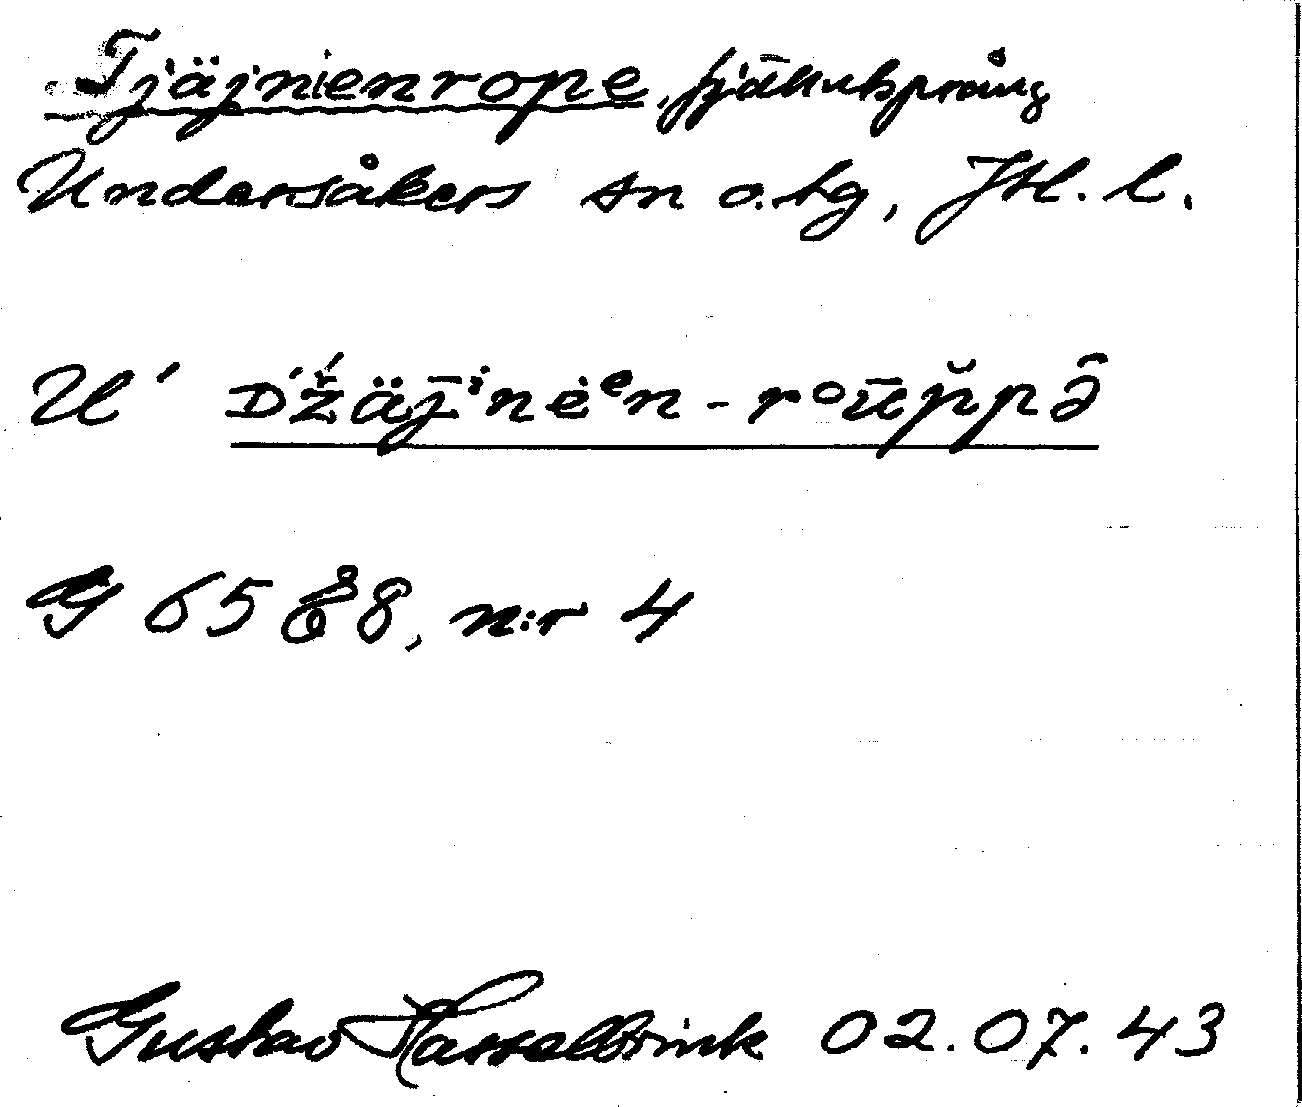 Tjäjnienrope, fjällsprång
Undersåkers sn o. tg, Jtl. l.
U´ D́ž́äj̄ⁱnėᵉn - roūp̆pə̑
G 65 E 8, n:r 4
Gustav Hasselbrink 02.07.43